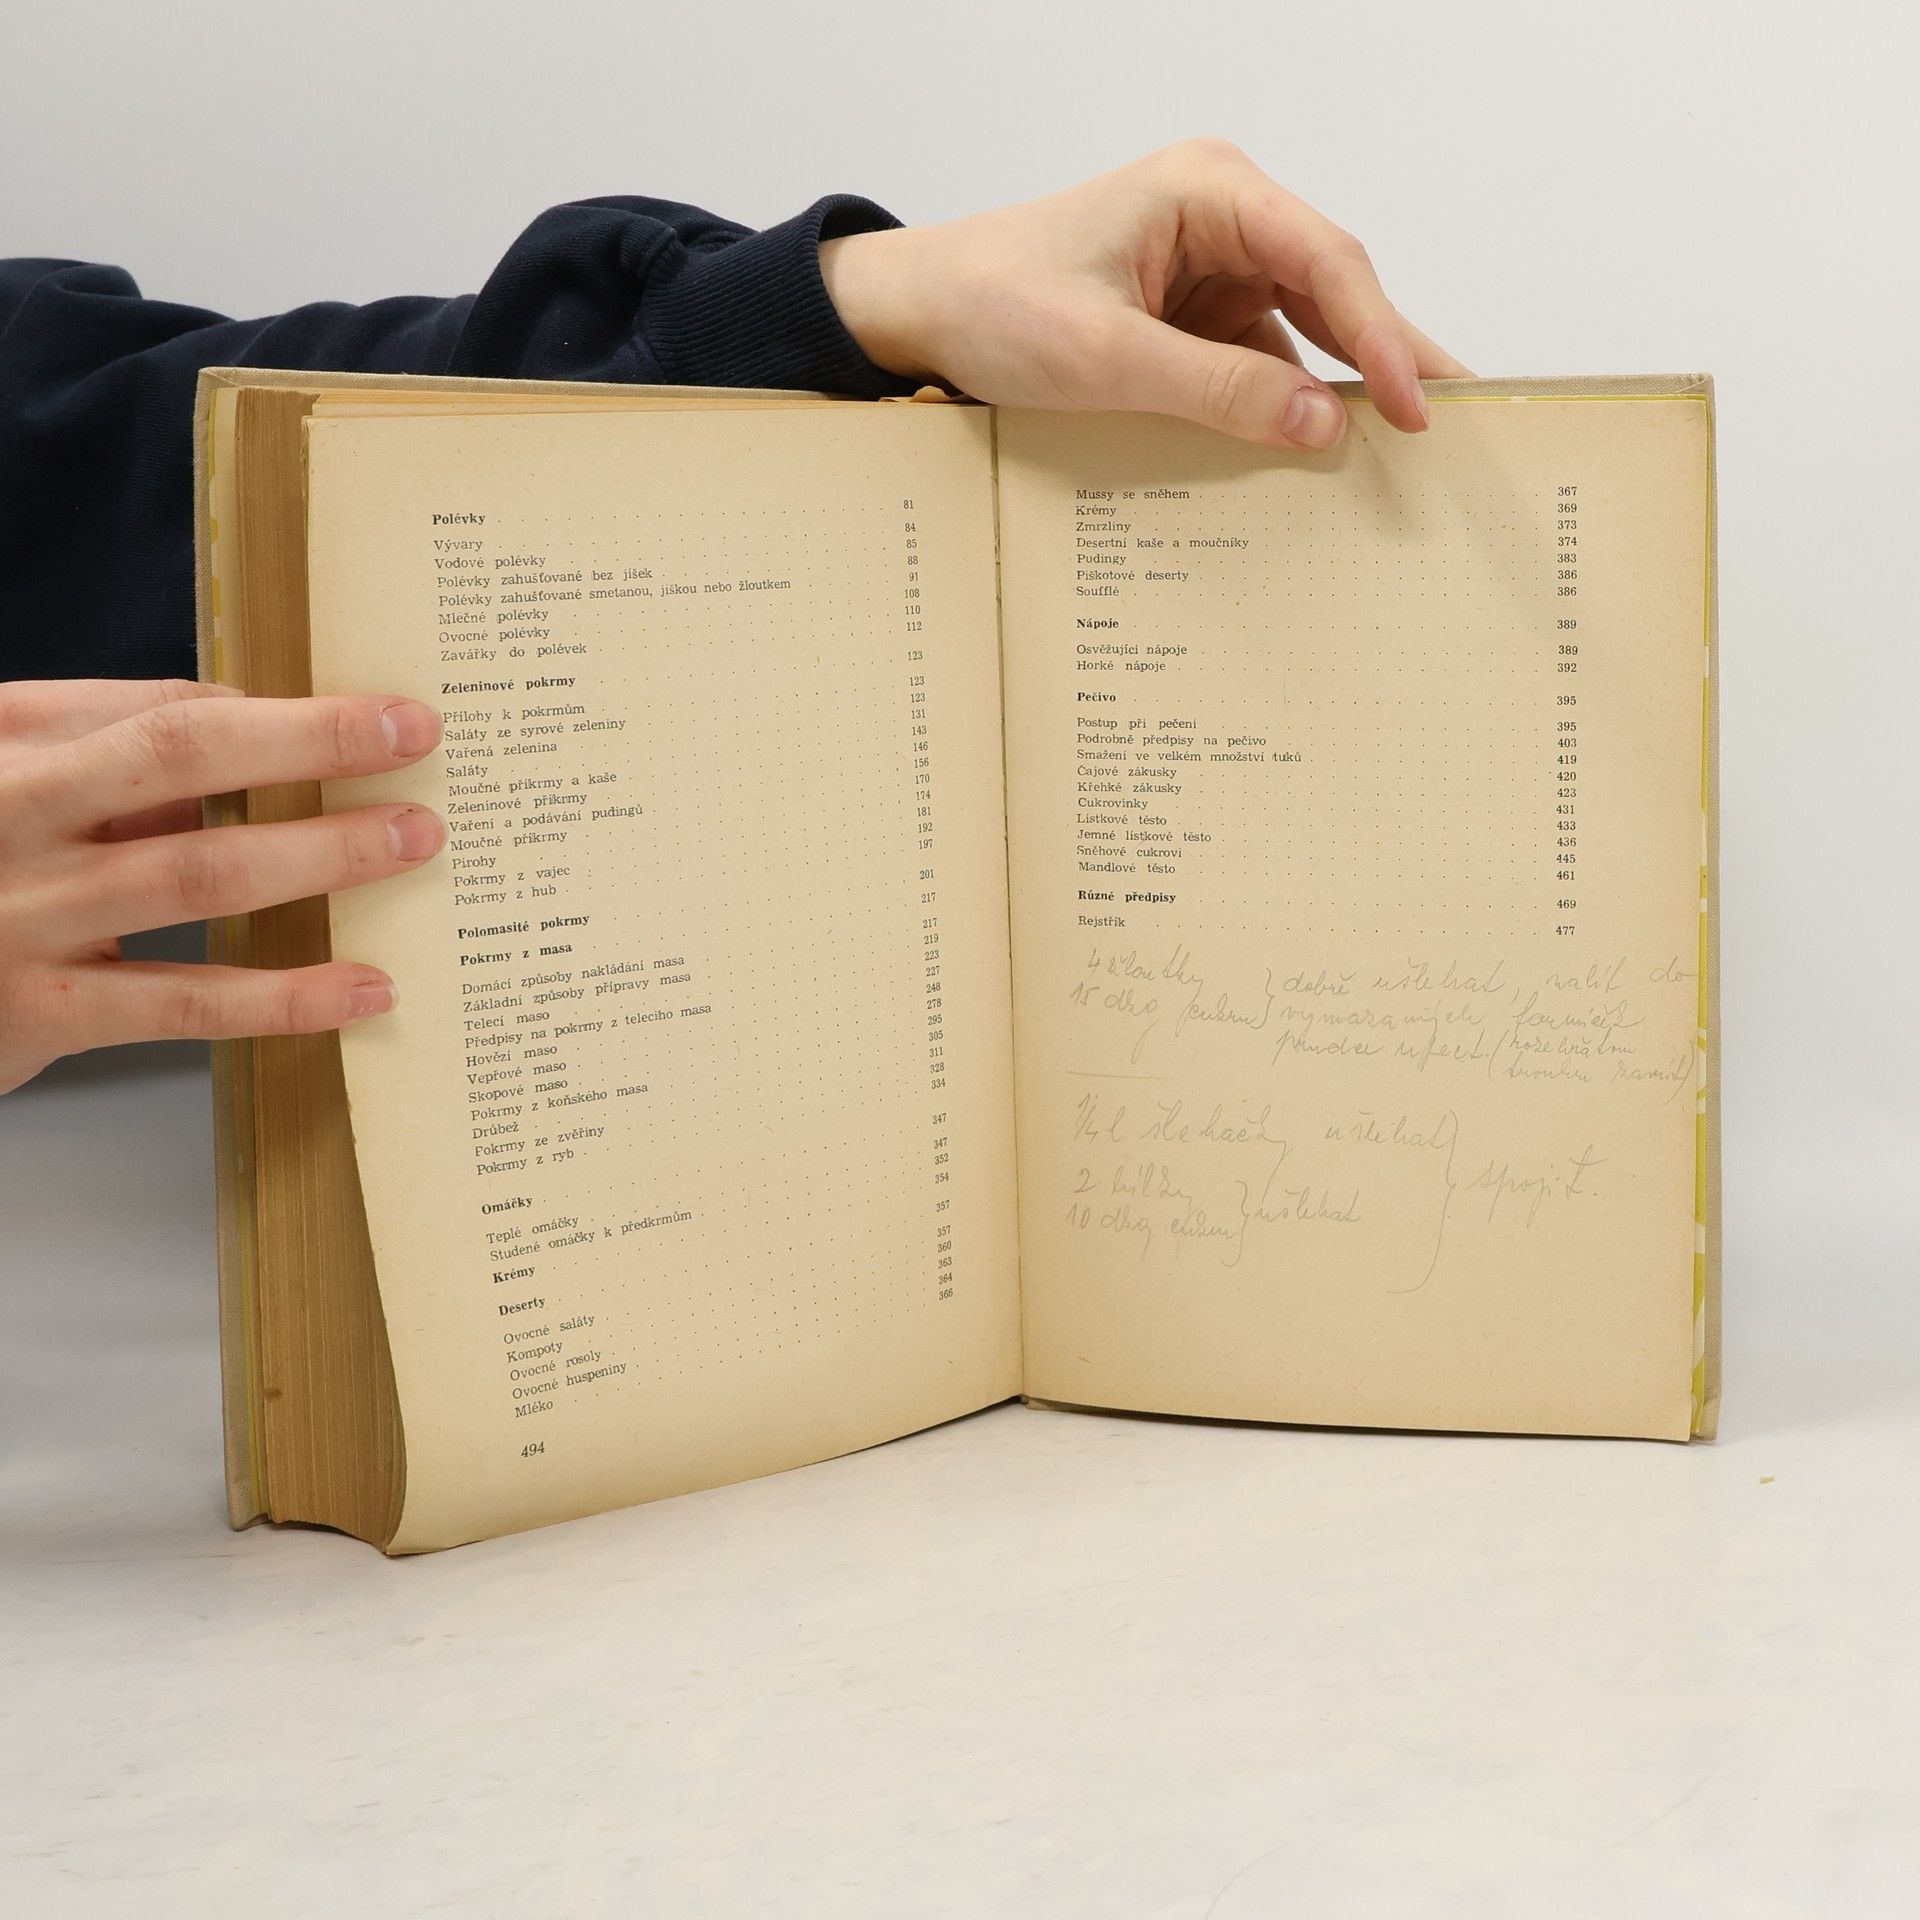 Polévky 81
Vývary 84
Vodové polévky 85
Polévky zahušťované bez jíšek 88
Polévky zahušťované smetanou, jíškou nebo žloutkem 91
Mlečné polévky 108
Ovocné polévky 110
Zavářky do polévek 112
Zeleninové pokrmy 123
Přílohy k pokrmům 123
Saláty ze syrové zeleniny 123
Vařená zelenina 131
Saláty 143
Moučné příkrmy a kaše 146
Zeleninové příkrmy 156
Vaření a podávání pudingů 170
Moučné příkrmy 174
Pirohy 181
Pokrmy z vajec 192
Pokrmy z hub 197
Polomasité pokrmy 201
Pokrmy z masa 217
Domácí způsoby nakládání masa 217
Základní způsoby přípravy masa 219
Telecí maso 223
Předpisy na pokrmy z telecího masa 227
Hovězí maso 248
Vepřové maso 278
Skopové maso 295
Pokrmy z koňského masa 305
Drůbež 311
Pokrmy ze zvěřiny 328
Pokrmy z ryb 334
Omáčky 347
Teplé omáčky 347
Studené omáčky k předkrmům 352
Krémy 354
Deserty 357
Ovocné saláty 357
Kompoty 360
Ovocné rosoly 363
Ovocné huspeniny 364
Mléko 366
494
Mussy se sněhem 367
Krémy 369
Zmrzliny 373
Desertní kaše a moučníky 374
Pudingy 383
Piškotové deserty 386
Soufflé 386
Nápoje 389
Osvěžující nápoje 389
Horké nápoje 392
Pečivo 395
Postup při pečení 395
Podrobné předpisy na pečivo 403
Smažení ve velkém množství tuků 419
Čajové zákusky 420
Křehké zákusky 423
Cukrovinky 431
Lístkové těsto 433
Jemné lístkové těsto 436
Sněhové cukroví 445
Mandlové těsto 461
Různé předpisy 469
Rejstřík 477
4 žloutky } dobře ušlehat, nalít do
15 dkg cukru } vymazaných formiček
upect. (rozehřátou
troubu zavřít)
1/4 l šlehačky ušlehat } spojit.
2 bílky } ušlehat
10 dkg cukru